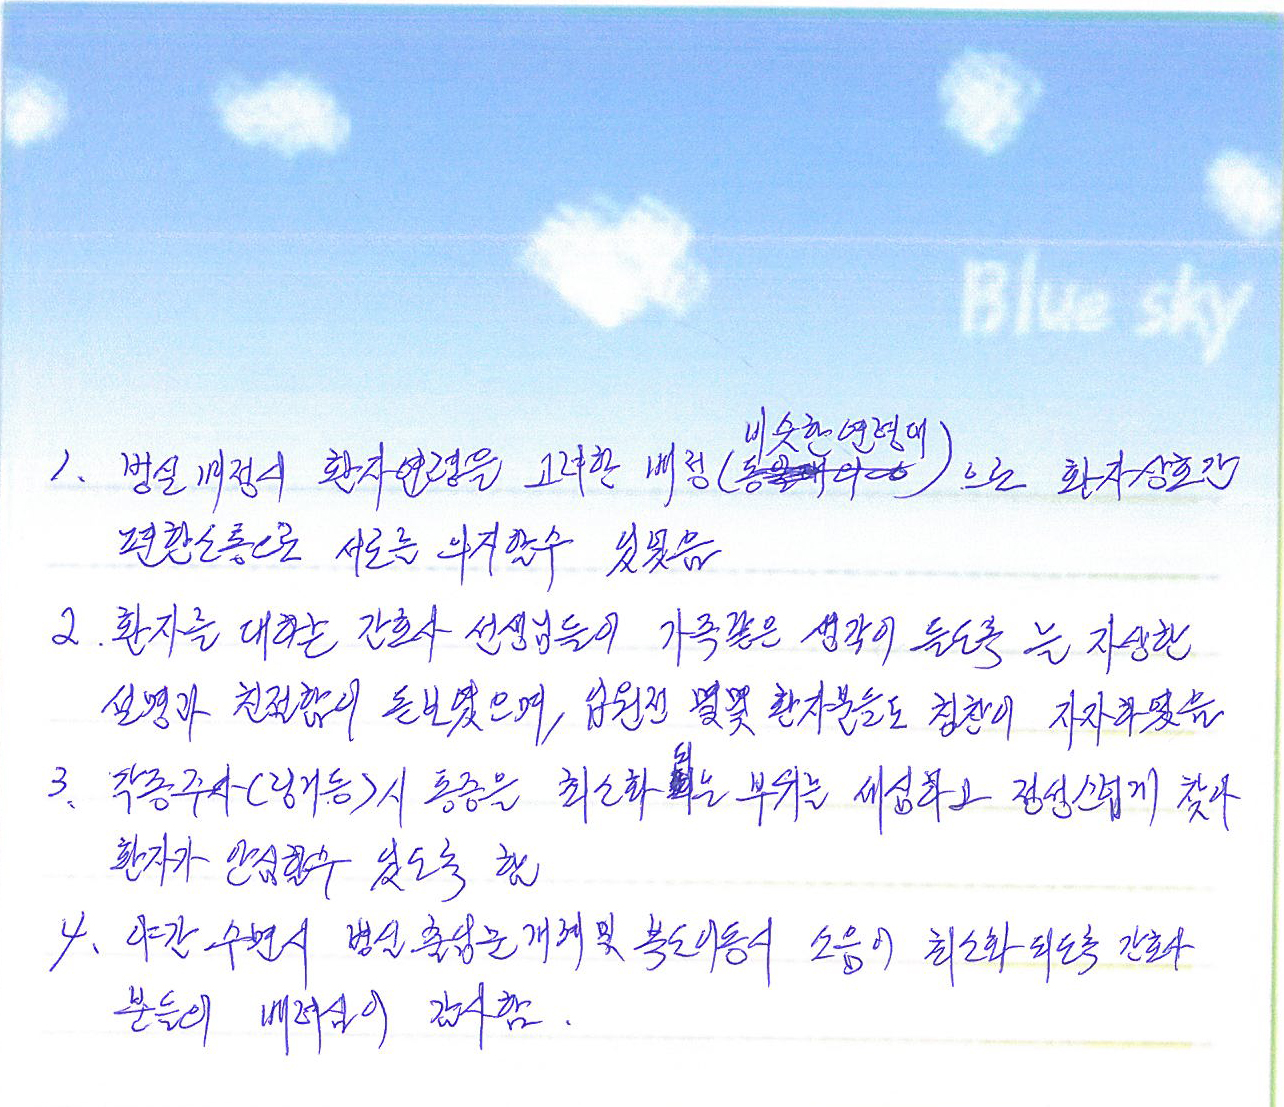 Blue sky
비슷한 연령대
1. 병실 배정시 환자연령을 고려한 배정 ( ) 으로 환자상호간
편한소통으로 서로를 의지할수 있었음
2. 환자를 대하는 간호사 선생님들이 가족같은 생각이 들도록 늘 자상한
설명과 친절함이 돋보였으며, 입원전 몇몇 환자분들도 칭찬이 자자하였음
3. 각종주사(링거등)시 통증을 최소화 되는 부위는 세심하고 정성스럽게 찾아
환자가 안심할수 있도록 함
4. 야간 수면시 병실 출입문 개폐 및 복도이동시 소음이 최소화 되도록 간호사
분들의 배려심이 감사함.